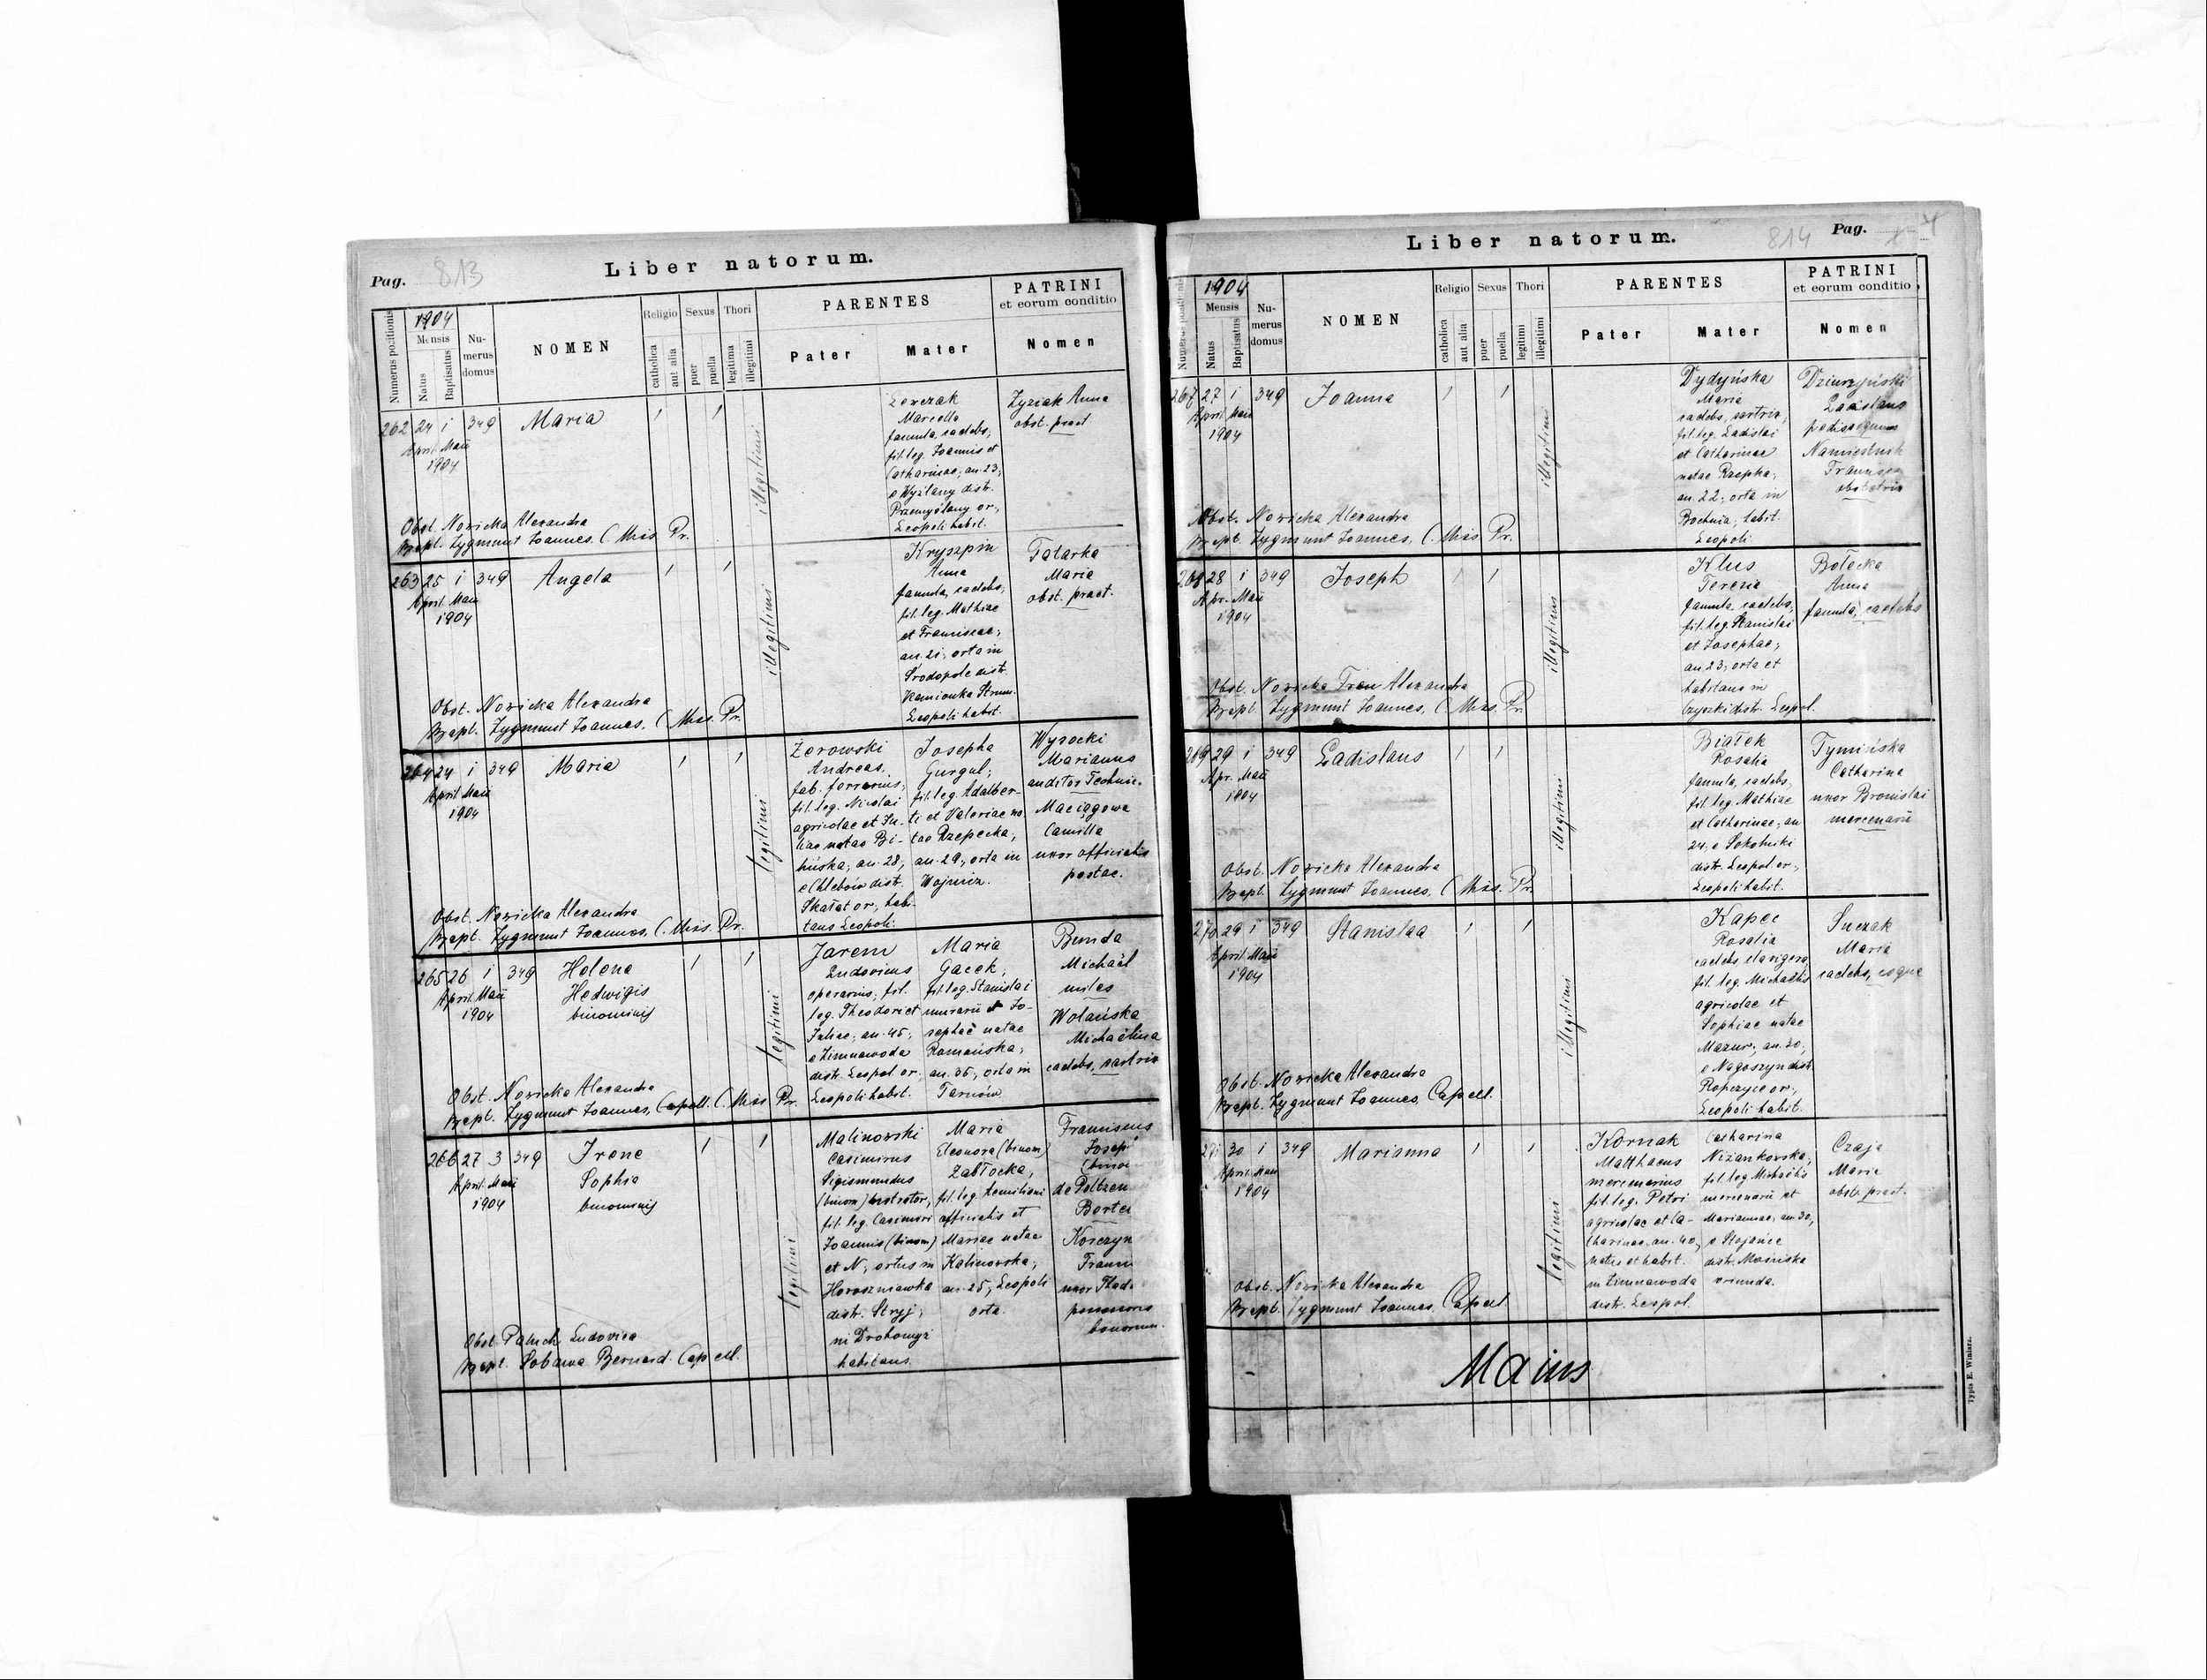 Pag. 813
Liber natorum.
Numerus positionis
1904
Mensis
Natus
Baptisatus
Nu-
merus
domus
NOMEN
Religio
catholica
aut alia
Sexus
puer
puella
Thori
legitima
illegitimi
PARENTES
Pater
Mater
PATRINI
et eorum conditio
Nomen
262 24 1 349 Maria 1 1
April. Maii
1904
illegitimi
Marcella
famula, caelebs,
fil. leg. Joannis et
Catharinae, an. 23,
e Wyżlany distr.
Przemyślany or.,
Leopoli habit.
Zyziak Anna
obst. pract.
Obst. Nowicka Alexandra
Bapt. Zygmunt Joannes, C. Miss. Pr.
263 25 1 349 Angela 1 1
April. Maii
1904
illegitimi
Kryszpin
Anna
famula, caelebs,
fil. leg. Mathiae
et Franciscae,
an. 21, orta in
Środopole distr.
Kamionka Strum.
Leopoli habit.
Tatarka
Maria
obst. pract.
Obst. Nowicka Alexandra
Bapt. Zygmunt Joannes. C. Miss. Pr.
264 24 1 349 Maria 1 1
April. Maii
1904
legitimi
Żerowski
Andreas,
fab. ferrarius,
fil. leg. Nicolai
agricolae et Ju-
liae natae Bi-
an. 28,
e Chlebów dist.
Skałat or., habi-
tans Leopoli.
Josepha
Gurgul,
fil. leg. Adalber-
ti et Valeriae na-
tae Rzepecka,
an. 29, orta in
Wojnicz.
Wysocki
Marianus
auditor Technic.
Maciągowa
Camilla
uxor officialis
postae.
Obst. Nowicka Alexandra
Bapt. Zygmunt Joannes, C. Miss. Pr.
265 26 1 349 Helena 1 1
April. Maii
1904
Hedwigis
binominis
legitimi
Jarem
Ludovicus
operarius, fil.
leg. Theodori et
Juliae, an. 45,
e Zimnawoda
distr. Leopol. or.,
Leopoli habit.
Maria
Gacek,
fil. leg. Stanislai
murarii et Jo-
sephae natae
Romańska,
an. 35, orta in
Tarnów
Bunda
Michaël
miles
Wolańska
Michaëlina
caelebs, sartrix
Obst. Nowicka Alexandra
Bapt. Zygmunt Joannes, Capell. C. Miss. Pr.
266 27 3 349 Irene 1 1
April. Maii
1904
Sophia
binominis
legitimi
Malinowski
Casimirus
Sigismundus
(binom)
fil. leg. Casimiri
Joannis (binom)
et N., ortus in
distr. Stryj,
habitans.
Maria
Eleonora (binom)
Zabłocka,
fil. leg. Aemiliani
officialis et
Mariae natae
Kalinowska,
an. 25, Leopoli
orta.
Franciscus
de
uxor
bonorum.
Obst. Paluch Ludovica
Bapt. Bernard. Capell.
Liber natorum.
814 Pag.
1904
Mensis
Natus
Baptisatus
Nu-
merus
domus
NOMEN
Religio
catholica
aut alia
Sexus
puer
puella
Thori
legitimi
illegitimi
PARENTES
Pater
Mater
PATRINI
et eorum conditio
Nomen
267 27 1 349 Joanna 1 1
April. Maii
1904
illegitimi
Dydyńska
Maria
caelebs, sartrix,
fil. leg. Ladislai
et Catharinae
natae Rzepka,
an. 22, orta in
Bochnia, habit.
Leopoli.
Dziurzyński
Ladislaus
Namiestnik
Francisca
obstetrix
Obst. Nowicka Alexandra
Bapt. Zygmunt Joannes, C. Miss. Pr.
268 28 1 349 Joseph 1 1
Apr. Maii
1904
illegitimi
Klus
Teresia
famula, caelebs,
fil. leg. Stanislai
et Josephae,
an. 23, orta et
habitans in
Czyszki distr. Leopol.
Bołecka
Anna
famula, caelebs
Obst. Nowicka Alexandra
Bapt. Zygmunt Joannes, C. Miss. Pr.
269 29 1 349 Ladislaus 1 1
Apr. Maii
1904
illegitimi
Białek
Rosalia
famula, caelebs,
fil. leg. Mathiae
et Catharinae, an.
24, e Sokolniki
distr. Leopol. or.,
Leopoli habit.
Tymińska
Catharina
uxor Bronislai
mercenarii
Obst. Nowicka Alexandra
Bapt. Zygmunt Joannes, C. Miss. Pr.
270 29 1 349 Stanislaa 1 1
April. Maii
1904
illegitimi
Kapec
Rosalia
caelebs clavigera,
fil. leg. Michaëlis
agricolae et
Sophiae natae
Mazur, an. 30,
e Nagoszyn distr.
Ropczyce or.,
Leopoli habit.
Suczak
Maria
caelebs, coqua
Obst. Nowicka Alexandra
Bapt. Zygmunt Joannes, Capell.
271 30 1 349 Marianna 1 1
April. Maii
1904
legitimi
Kornak
Matthaeus
mercenarius
fil. leg. Petri
agricolae et Ca-
tharinae, an. 40,
natus et habit.
in Zimnawoda
distr. Leopol.
Catharina
Niżankowska,
fil. leg. Michaëlis
mercenarii et
Mariannae, an. 30,
e Stojańce
distr. Mościska
oriunda.
Czaja
Maria
obst. pract.
Obst. Nowicka Alexandra
Bapt. Zygmunt Joannes, Capell.
Maius
Typis E. Winiarz.